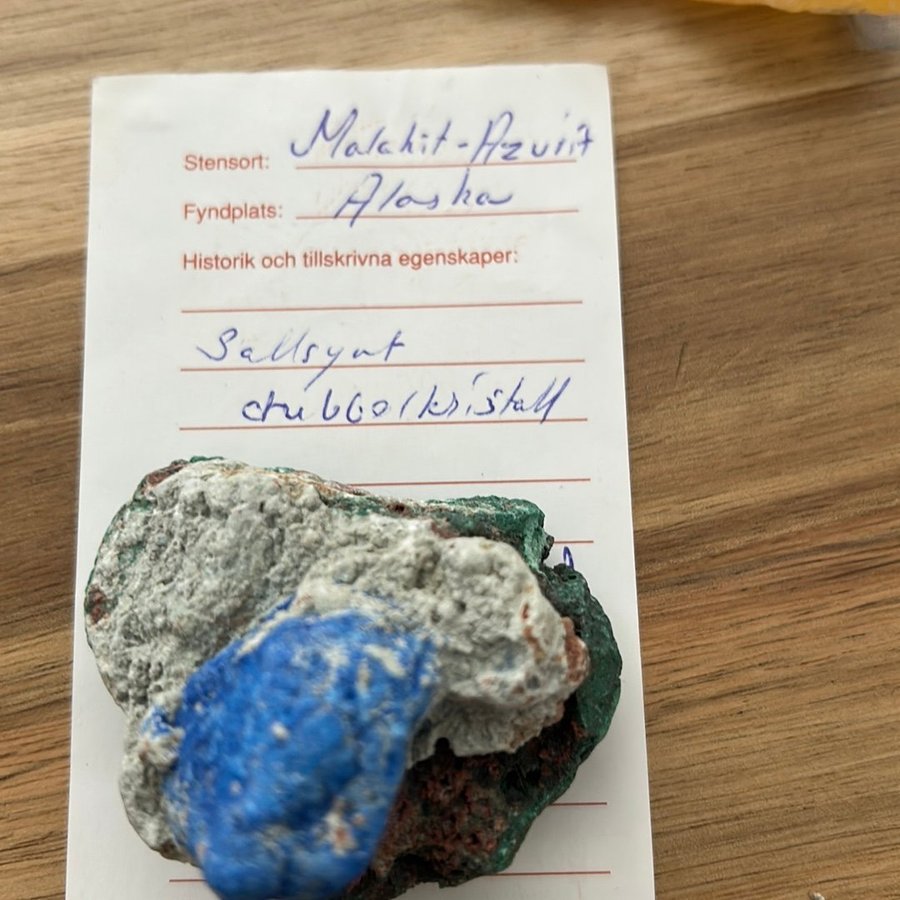 Stensort: Malakit-Azurit
Fyndplats: Alaska
Historik och tillskrivna egenskaper:
Sällsynt
dubbelkristall